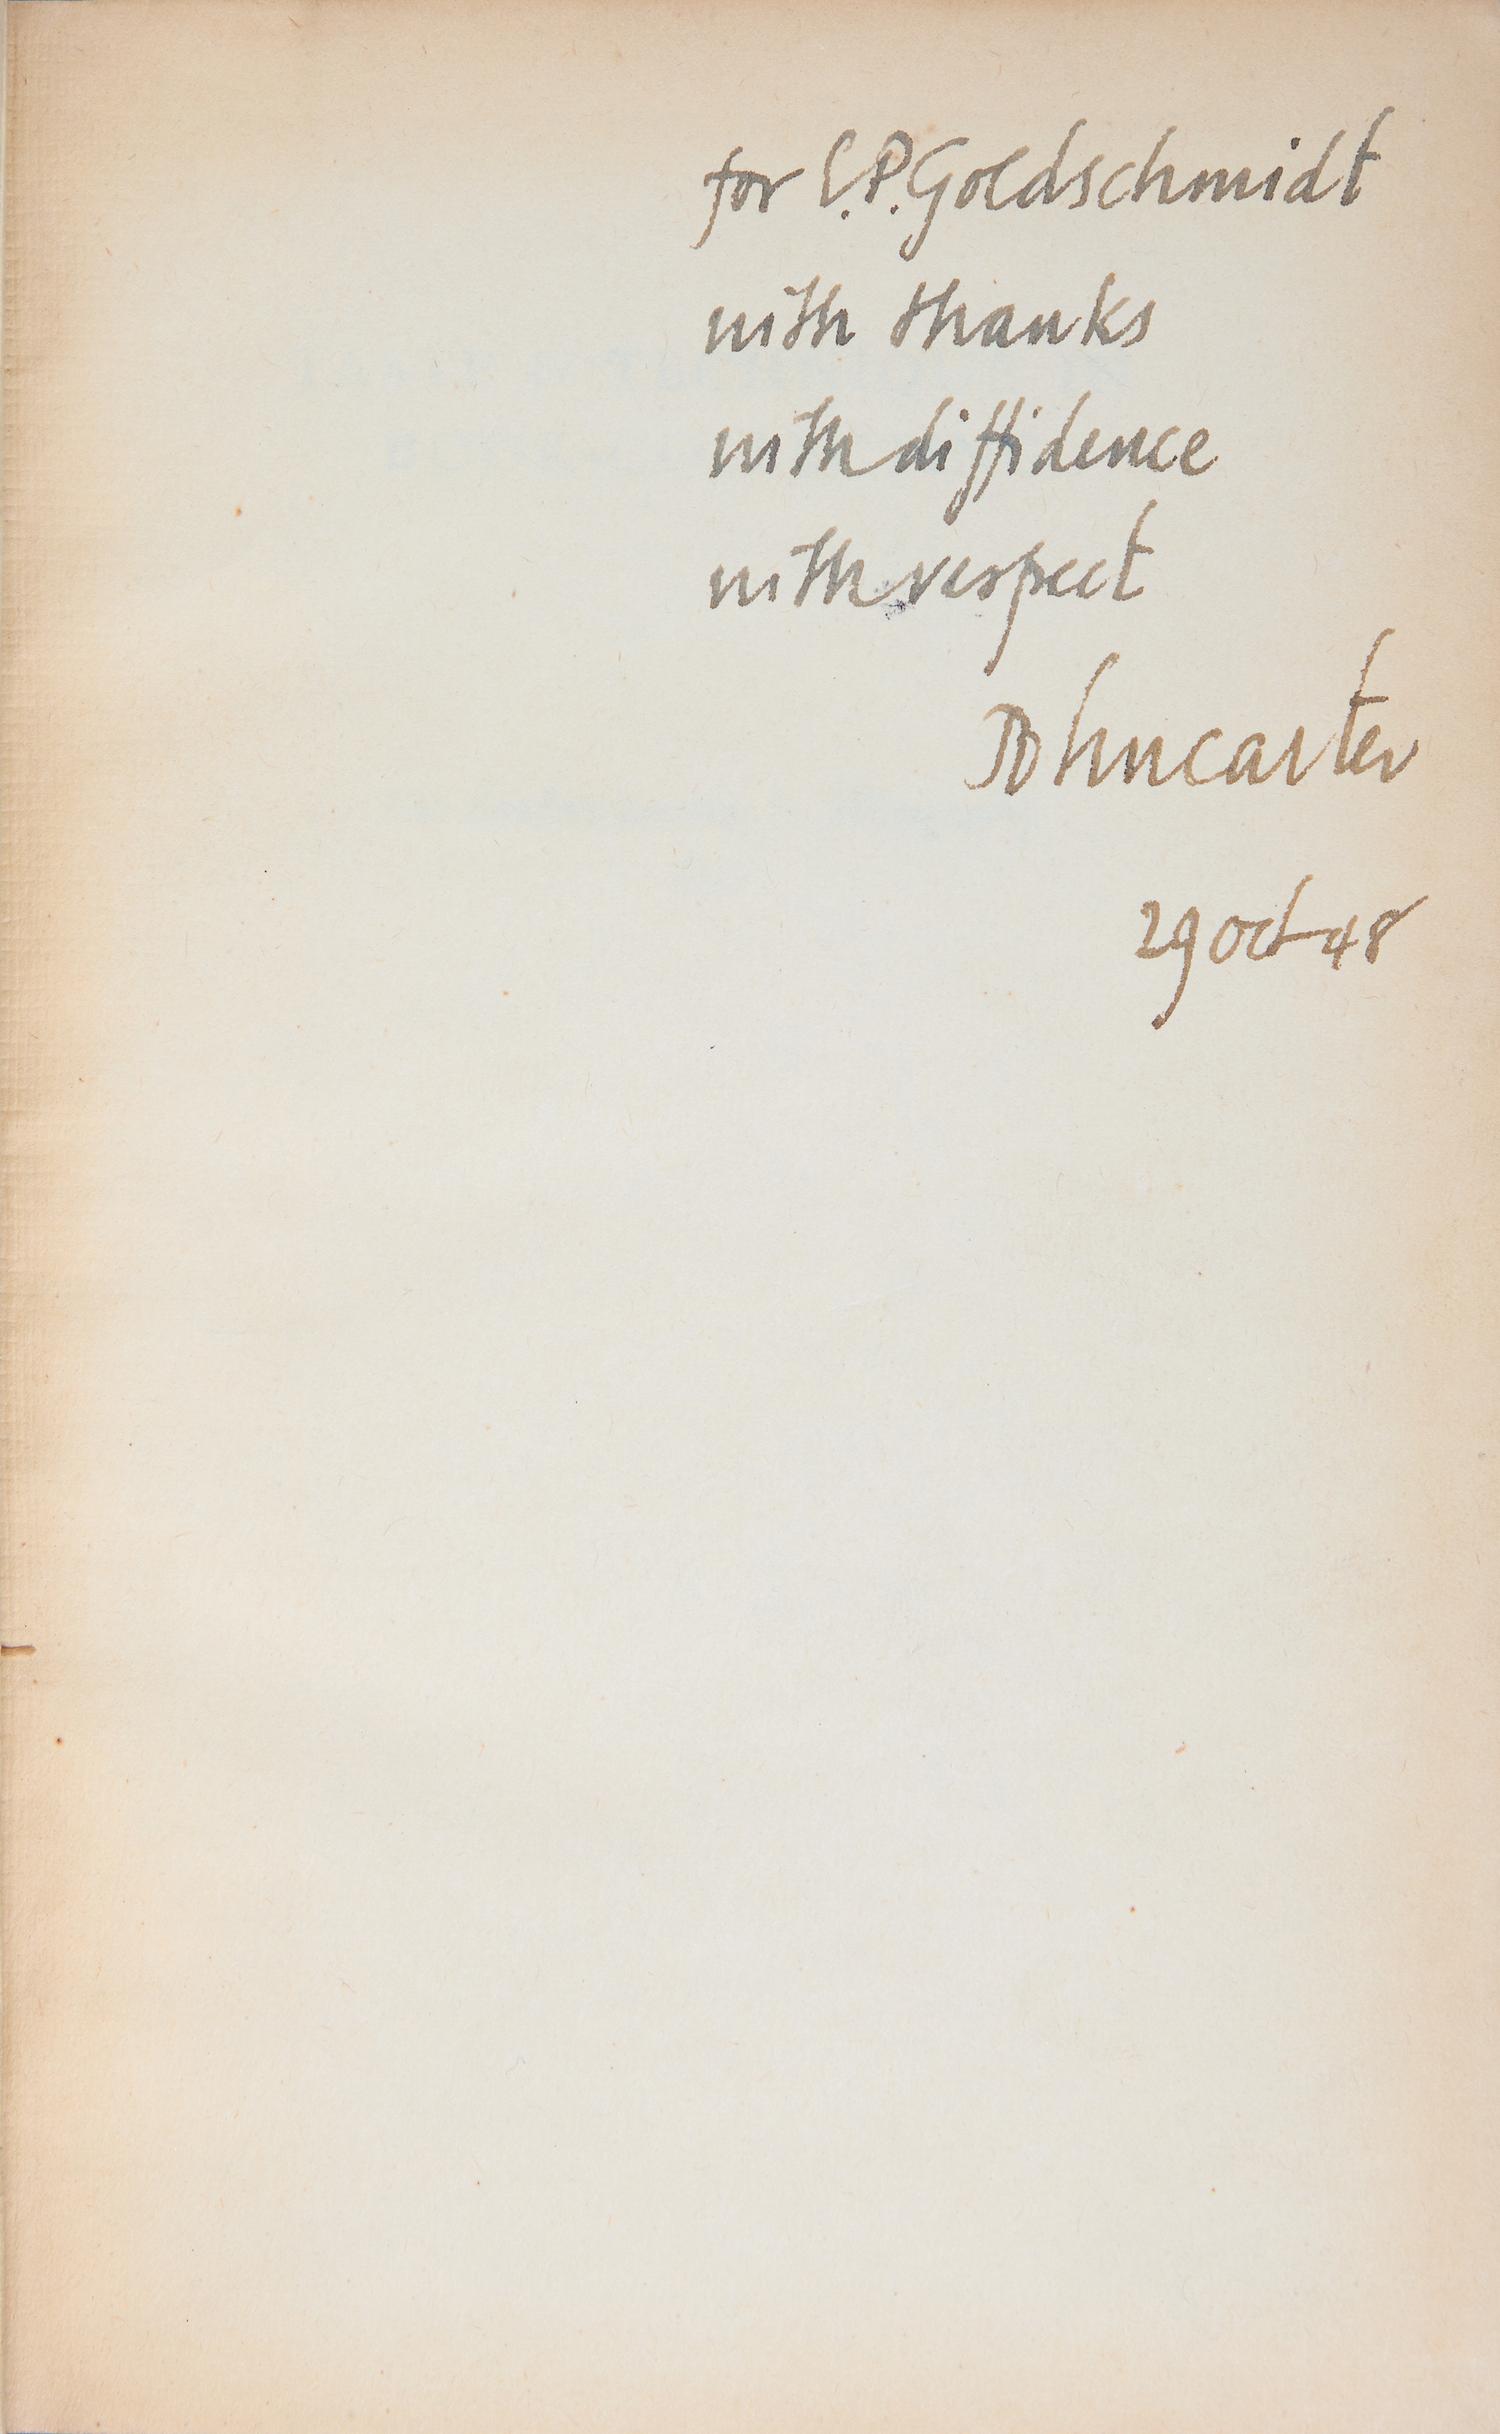 for E.P. Goldschmidt
with thanks
with diffidence
with respect
John Carter
29 Oct 48